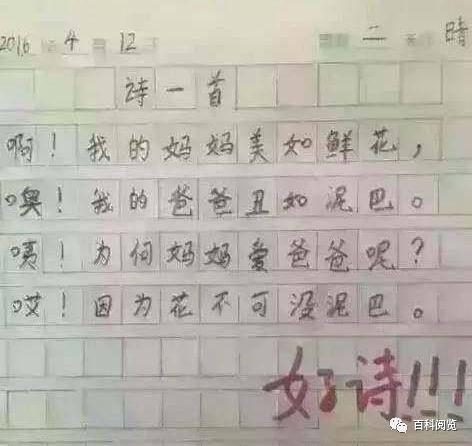 2016 4 12 二 晴
诗一首
啊！我的妈妈美如鲜花，
噢！我的爸爸丑如泥巴。
咦！为何妈妈爱爸爸呢？
哎！因为花不可没泥巴。
好诗!!!
百科阅览